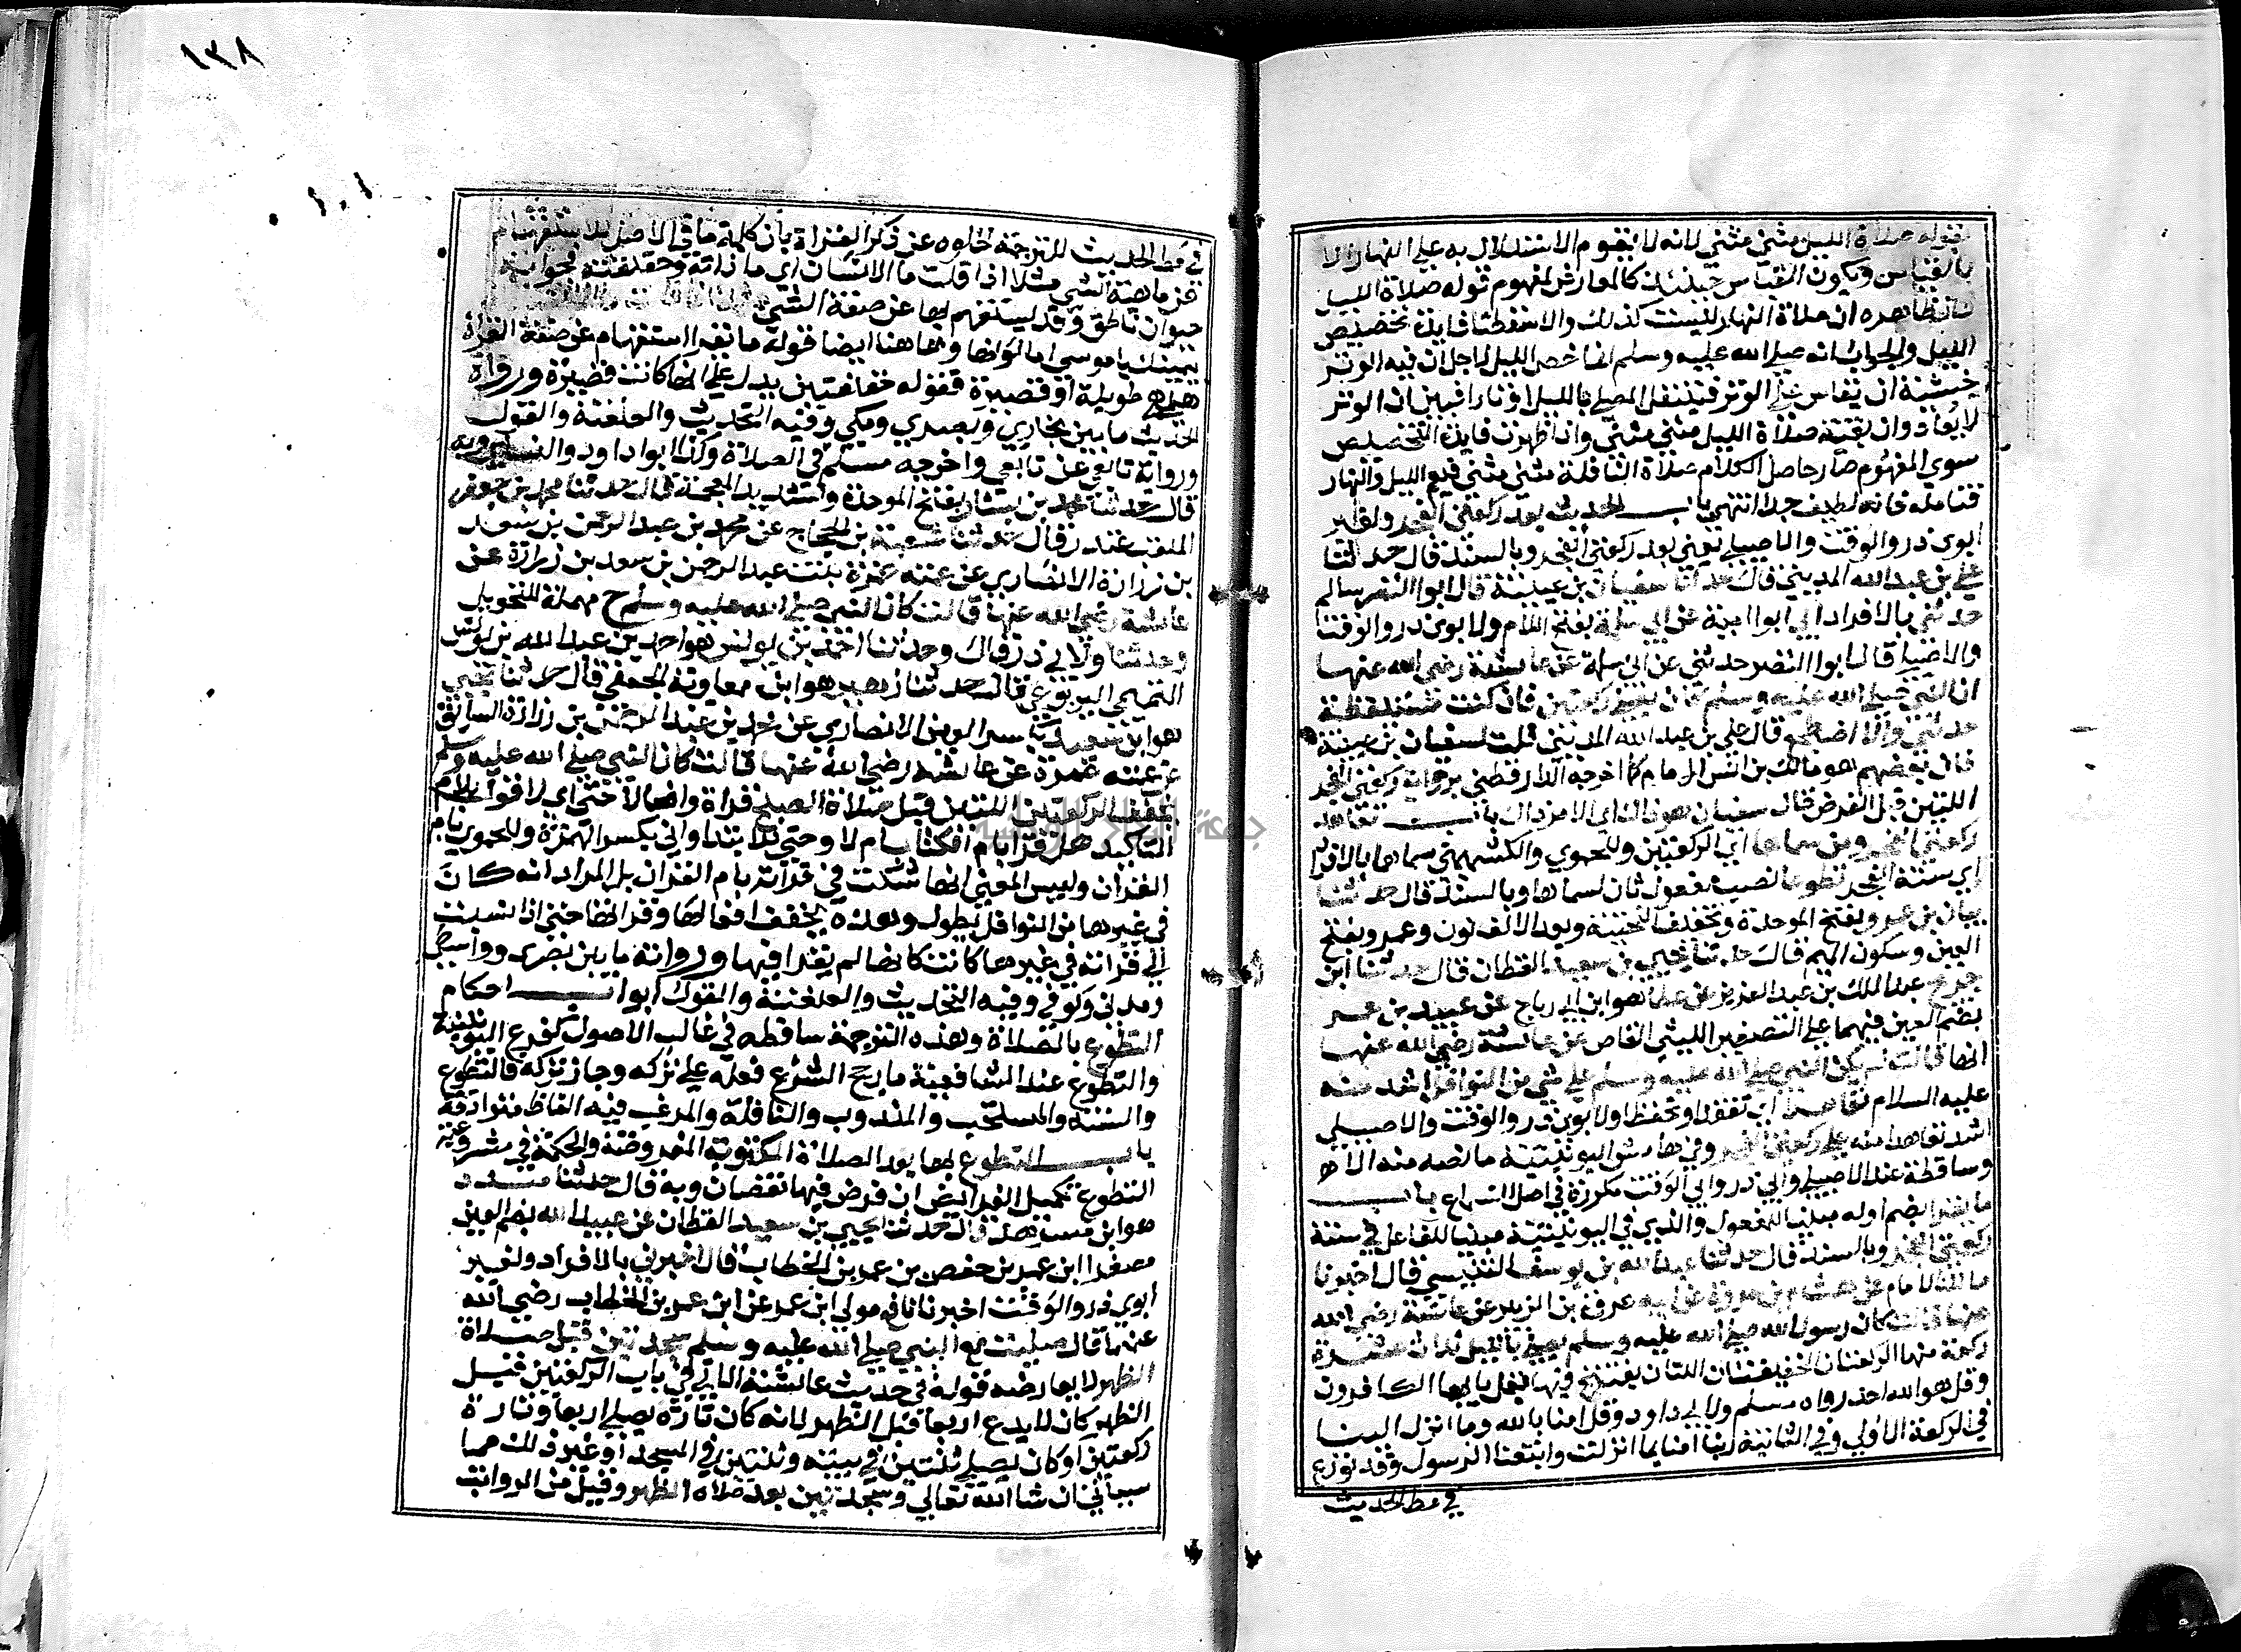 بقوله صلاة الليل مثنى مثنى لانه لا يقوم الاستدلال به علي النهار الا
بالقياس ويكون القياس حينئذ كالمعارض لمفهوم قوله صلاة الليل
فان ظاهره ان صلاة النهار ليست كذلك والاسقطت فايدة تخصيص
الليل والجواب انه صلي الله عليه وسلم انما خص الليل لاجل ان فيه الوتر
خشية ان يقاس علي الوتر فيتنفل المصلي بالليل اوتارا فبين ان الوتر
لا يعاد وان بقية صلاة الليل مثني مثني واذا ظهرت فايدة التخصيص
سوي المفهوم صار حاصل الكلام صلاة النافلة مثني مثني فيعم الليل والنهار
فتامله فانه لطيف جدا انتهي باب الحديث بعد ركعتي الفجر ولغير
ابوي ذر والوقت والاصيلي يعني بعد ركعتي الفجر وبالسند قال حدثنا
علي بن عبد الله المديني قال حدثنا سفيان بن عيينة قال ابوا النضر سالم
حدثني بالافراد ابي ابوا امية عن ابي سلمة بفتح اللام ولابوي ذر والوقت
والاصيلي قال ابوا النضر حدثني عن ابي سلمة عن عايشة رضي الله عنها
ان النبي صلي الله عليه وسلم كان يصلي ركعتين فان كنت مستيقظة
حدثني والا اضطجع قال علي بن عبد الله المديني قلت لسفيان بن عيينة
فان بعضهم هو مالك بن انس الامام كما اخرجه الدارقطني يرويه ركعتي الفجر
اللتين قبل الفرض قال سفيان هو ذاك اي الامر ذاك باب تعاهد
ركعتي الفجر ومن سماها اي الركعتين وللحموي والكشميهني سماها بالافراد
اي سنة الفجر تطوعا نصب مفعول ثان لسماها وبالسند قال حدثنا
بيان بن عمرو بفتح الموحدة وتخفيف التحتية وبعد الالف نون وعمرو بفتح
العين وسكون الميم قال حدثنا يحيي بن سعيد القطان قال حدثنا ابن
جريج عبد الملك بن عبد العزيز عن عطا هو ابن ابي رباح عن عبيد بن عمير
بضم العين فيهما علي التصغير الليثي القاص عن عايشة رضي الله عنها
انها قالت لم يكن النبي صلي الله عليه وسلم علي شي من النوافل اشد منه
عليه السلام تعاهدا اي تفقدا وتحفظا ولابوي ذر والوقت والاصيلي
اشد تعاهدا منه علي ركعتي الفجر وفي هامش اليونينية ما نصه منه الاه
وساقطة عند الاصيلي وابي ذر وابي الوقت مكررة في اصل السماع باب
ما يقرا بضم اوله مبنيا للمفعول والذي في اليونينية مبنيا للفاعل في سنة
ركعتي الفجر وبالسند قال حدثنا عبد الله بن يوسف التنيسي قال اخبرنا
مالك الامام عن هشام بن عروة عن ابيه عروة بن الزبير عن عايشة رضي الله
عنها قالت كان رسول الله صلي الله عليه وسلم يصلي بالليل ثلاث عشرة
ركعة منها الركعتان الخفيفتان اللتان يفتتح فيها بقل يا ايها الكافرون
وقل هو الله احد رواه مسلم ولابي داود وقل امنا بالله وما انزل الينا
في الركعة الاولي وفي الثانية ربنا امنا بما انزلت واتبعنا الرسول وقد نوزع
في مط الحديث
١٣٨
في مط الحديث للترجمة لخلوه عن ذكر القراة بان كلمة ما في الاصل للاستفهام
عن ماهية الشي مثلا اذا قلت ما الانسان اي ما ذاته وحقيقته فجوابه
حيوان ناطق وقد يستفهم بها عن صفة الشي
بيمينك ياموسي اما لونها وها هنا ايضا قوله ما يقرا استفهام عن صفة القراة
هل هي طويلة او قصيرة فقوله خفيفتين يدل علي انها كانت قصيرة ورواة
الحديث ما بين بخاري وبصري ومكي وفيه التحديث والعنعنة والقول
ورواية تابعي عن تابعي واخرجه مسلم في الصلاة وكذا ابوا داود والنساي وبه
قال حدثنا محمد بن بشار بفتح الموحدة وتشديد المعجمة قال حدثنا محمد بن جعفر
الملقب غندر قال حدثنا شعبة بن الحجاج عن محمد بن عبد الرحمن بن سعد
بن زرارة الانصاري عن عمته عمرة بنت عبد الرحمن بن سعد بن زرارة عن
عايشة رضي الله عنها قالت كان النبي صلي الله عليه وسلم ح مهملة للتحويل
وحدثنا ولابي ذر قال وحدثنا احمد بن يونس هو احمد بن عبد الله بن يونس
التميمي اليربوعي قال حدثنا زهير هو ابن معاوية الجعفي قال حدثنا يحيي
هو ابن سعيد الانصاري عن محمد بن عبد الرحمن بن زرارة السابق
عن عمته عمرة عن عايشة رضي الله عنها قالت كان النبي صلي الله عليه وسلم
يخفف الركعتين اللتين قبل صلاة الصبح قراة وافعالا حتي اي لاقول بلام
التاكيد هل قرا بام الكتاب ام لا وحتي للابتدا واني بكسر الهمزة وللحموي بام
القران وليس المعني انها شكت في قراته بام القران بل المراد انه كان
في غيرها من النوافل يطول وهذه يخفف افعالها وقراتها حتي اذا نسبت
الي قراته في غيرها كانت كانها لم يقرا فيها ورواته ما بين بصري وواسطي
ومدني وكوفي وفيه التحديث والعنعنة والقول ابواب احكام
التطوع بالصلاة وهذه الترجمة ساقطه في غالب الاصول كفرع اليونينية
والتطوع عند الشافعية ما رجح الشرع فعله علي تركه وجاز تركه فالتطوع
والسنة والمستحب والمندوب والنافلة والمرغب فيه الفاظ مترادفة
باب التطوع بها بعد الصلاة المكتوبة المفروضة والحكمة في مشروعية
التطوع تكميل الفرايض ان فرض فيها نقصان وبه قال حدثنا مسدد
هو ابن مسرهد قال حدثنا يحيي بن سعيد القطان عن عبيد الله بضم العين
مصغرا ابن عمر بن حفص بن عمر بن الخطاب قال اخبرني بالافراد ولغير
ابوي ذر والوقت اخبرنا نافع مولي ابن عمر عن ابن عمر بن الخطاب رضي الله
عنهما قال صليت مع النبي صلي الله عليه وسلم سجدتين قبل صلاة
الظهر لا يعارضه قوله في حديث عايشة الاتي في باب الركعتين قبل
الظهر كان لا يدع اربعا قبل الظهر لانه كان تارة يصلي اربعا وتارة
ركعتين او كان يصلي ثنتين في بيته وثنتين في المسجد او غير ذلك مما
سياتي ان شا الله تعالي وسجدتين بعد صلاة الظهر وقيل من الرواتب